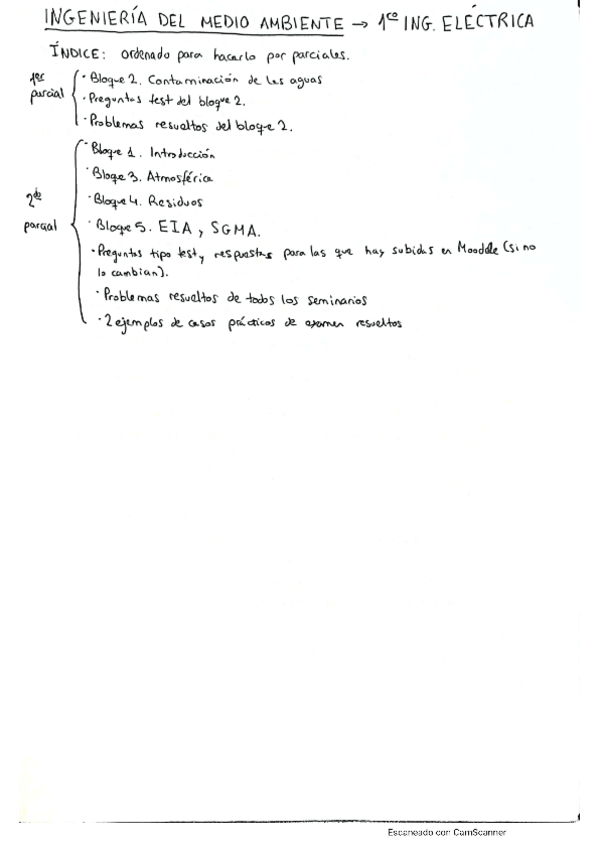 INGENIERÍA DEL MEDIO AMBIENTE → 1co ING. ELÉCTRICA
ÍNDICE: ordenado para hacerlo por parciales.
1er parcial
· Bloque 2. Contaminación de las aguas
· Preguntas test del bloque 2.
· Problemas resueltos del bloque 2.
2do parcial
· Bloque 1. Introducción
· Bloque 3. Atmosférica
· Bloque 4. Residuos
· Bloque 5. EIA y SGMA.
· Preguntas tipo test y respuestas para las que hay subidas en Mooddle (si no
lo cambian).
· Problemas resueltos de todos los seminarios
· 2 ejemplos de casos prácticos de examen resueltos
Escaneado con CamScanner